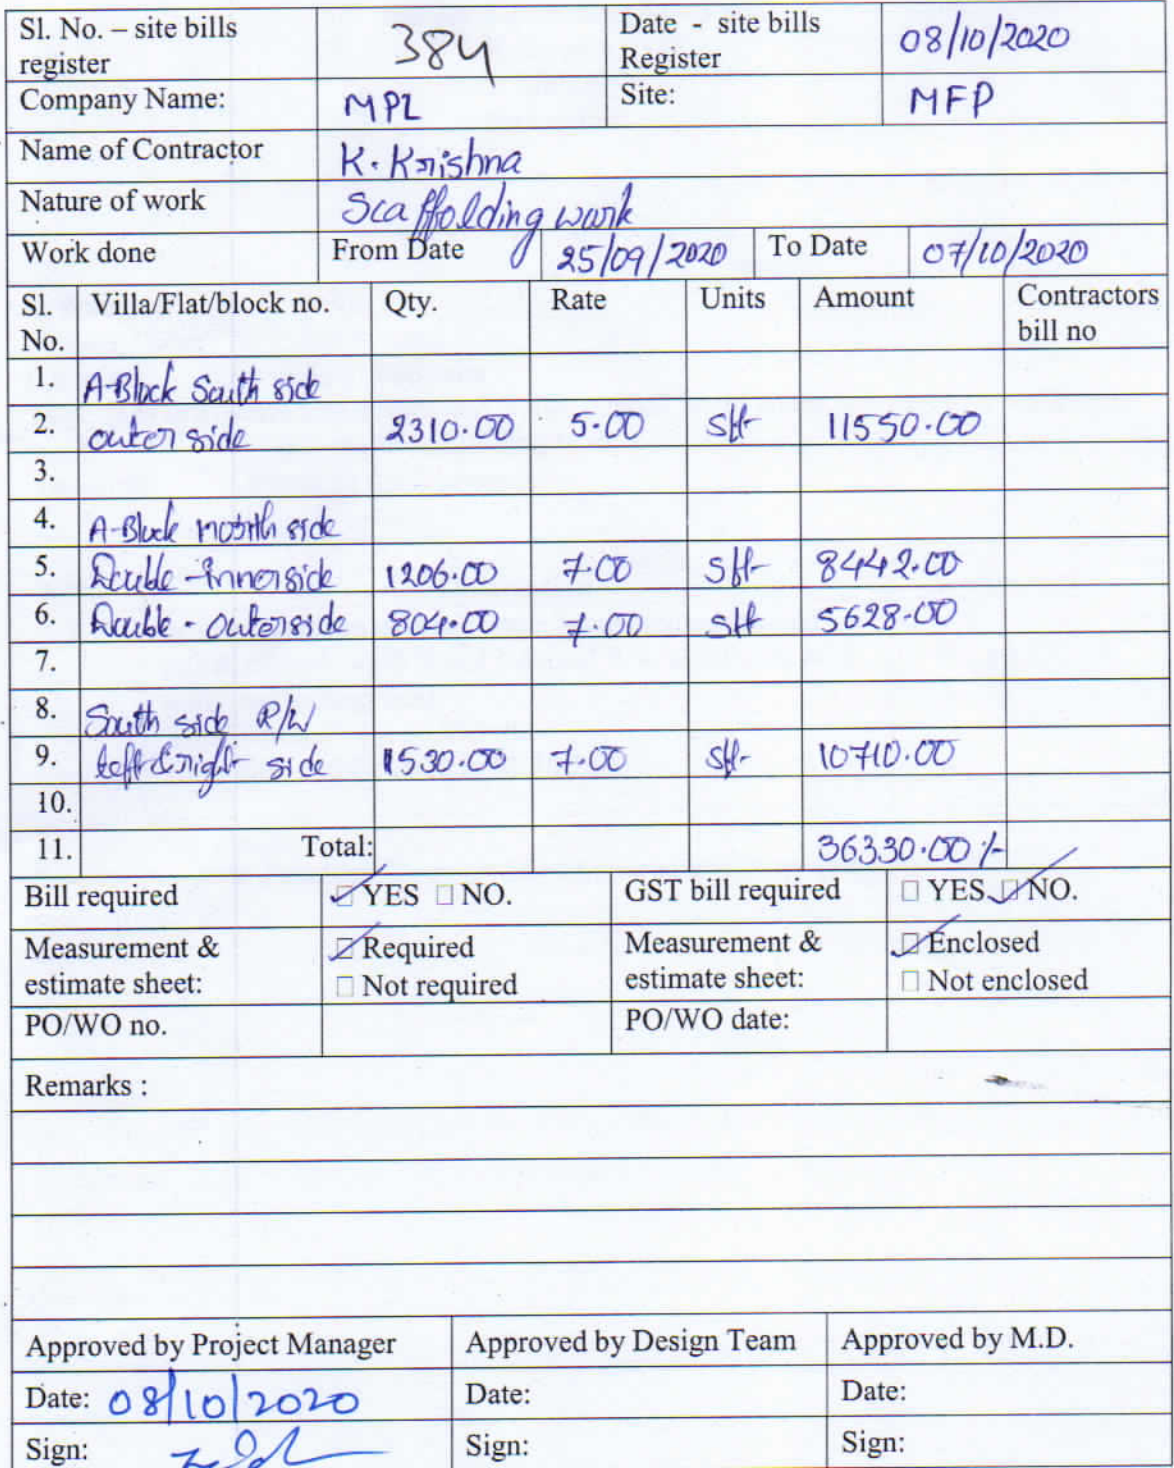 Sl. No. – site bills register 384 Date - site bills Register 08/10/2020
Company Name: MPL Site: MFP
Name of Contractor K. Krishna
Nature of work Scaffolding work
Work done From Date 25/09/2020 To Date 07/10/2020
Sl. No. Villa/Flat/block no. Qty. Rate Units Amount Contractors bill no
1. A-Block South side
2. outer side 2310.00 5.00 Sft 11550.00
3.
4. A-Block north side
5. Double - Innerside 1206.00 7.00 Sft 8442.00
6. Double - Outerside 804.00 7.00 Sft 5628.00
7.
8. South side R/W
9. left & right side 1530.00 7.00 Sft 10710.00
10.
11. Total: 36330.00 /-
Bill required YES NO. GST bill required YES NO.
Measurement & estimate sheet: Required Not required Measurement & estimate sheet: Enclosed Not enclosed
PO/WO no. PO/WO date:
Remarks :
Approved by Project Manager Approved by Design Team Approved by M.D.
Date: 08/10/2020 Date: Date:
Sign: Sign: Sign: